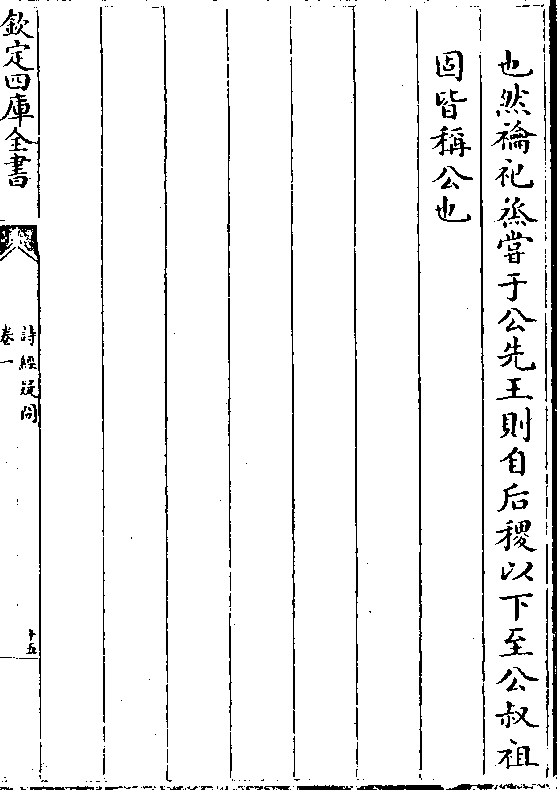 也然禴祀烝嘗于公先王則自后稷以下至公叔祖
固皆稱公也
欽定四庫全書
詩經疑問
卷一
十五